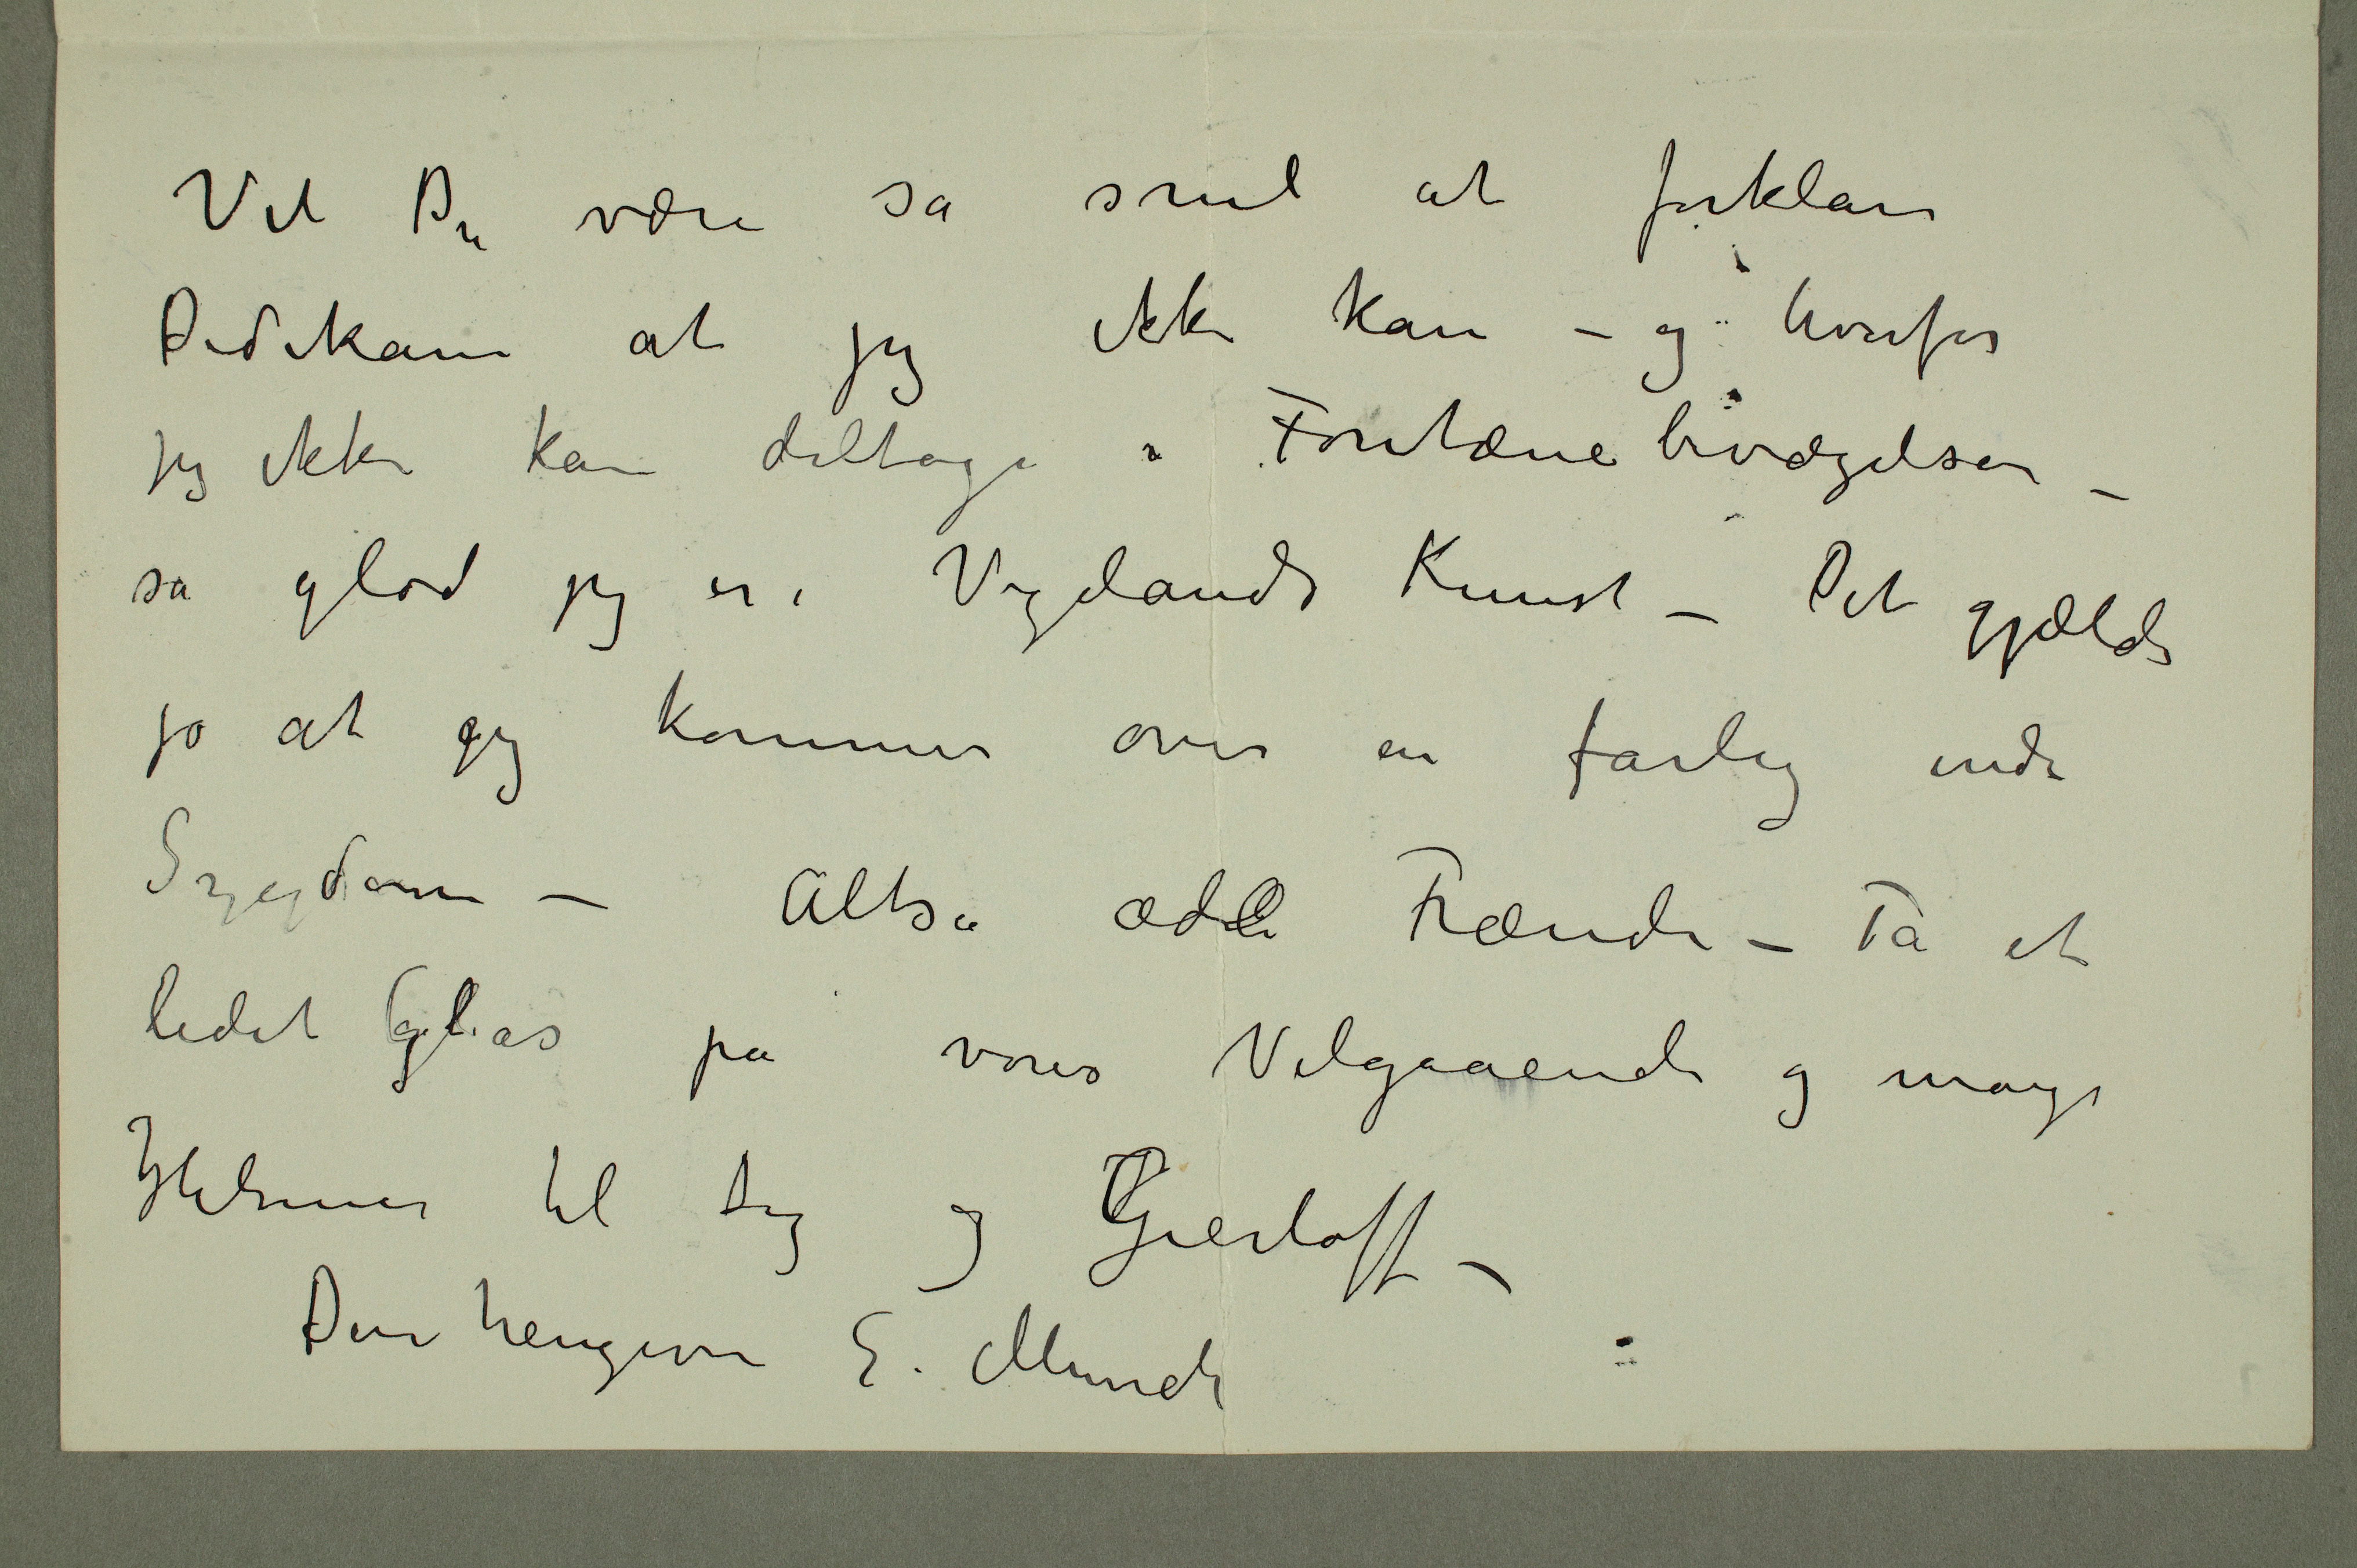 Vil Du være så snil at forklare
Dedekam at jeg ikke kan – og hvorfor
jeg ikke kan deltage i Fontænebevægelsen –
så glad jeg er i Vigelands Kunst – Det gjælder
jo at jeg kommer over en farlig indre
Sygdom – Altså ædle Frænde – Ta et
lidet Glas på vores Velgaaende og mange
Hilsener til Dig og Gierløff –
Din hengivne E. Munch